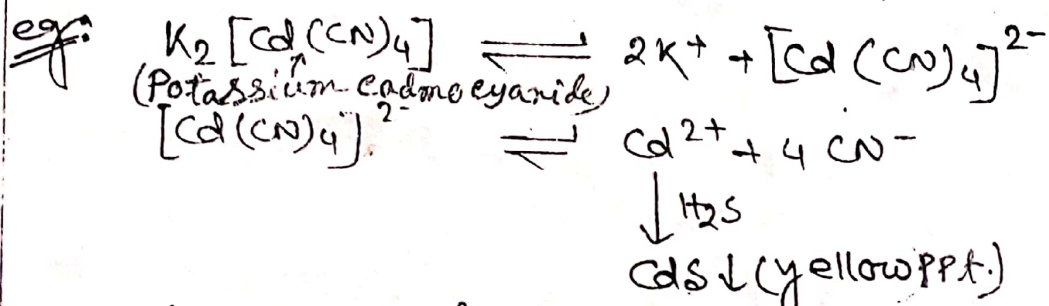 eg:
K₂ [Cd(CN)₄] ⇌ 2K⁺ + [Cd(CN)₄]²⁻
(Potassium cadmocyanide)
[Cd(CN)₄]²⁻ ⇌ Cd²⁺ + 4 CN⁻
↓ H₂S
CdS ↓ (yellow ppt.)